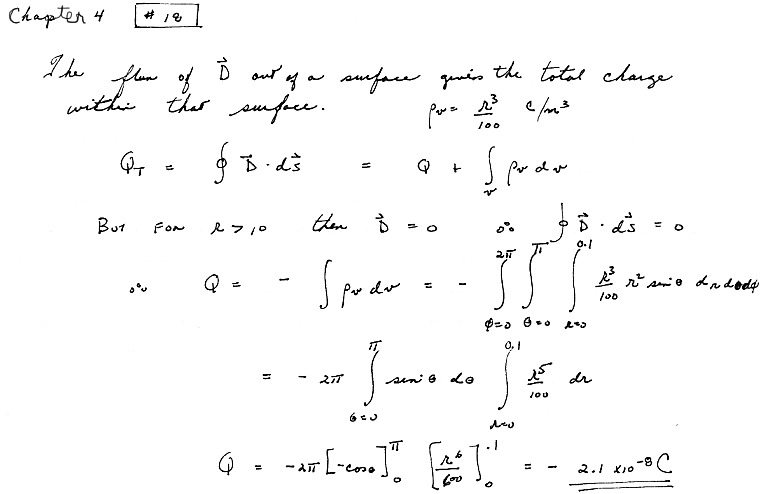 Chapter 4 # 18
The flux of D⃗ out of a surface gives the total charge
within that surface. ρv = r³/100 C/m³
Q_T = ∮ D⃗ · ds⃗ = Q + ∫_v ρv dv
But for r > 10 then D⃗ = 0 ∴ ∮ D⃗ · ds⃗ = 0
∴ Q = - ∫ ρv dv = - ∫_{φ=0}^{2π} ∫_{θ=0}^{π} ∫_{r=0}^{0.1} r³/100 r² sin θ dr dθ dφ
= - 2π ∫_{θ=0}^{π} sin θ dθ ∫_{r=0}^{0.1} r⁵/100 dr
Q = -2π [-cos θ]_0^π [r⁶/600]_0^{.1} = - 2.1 x10⁻⁸ C